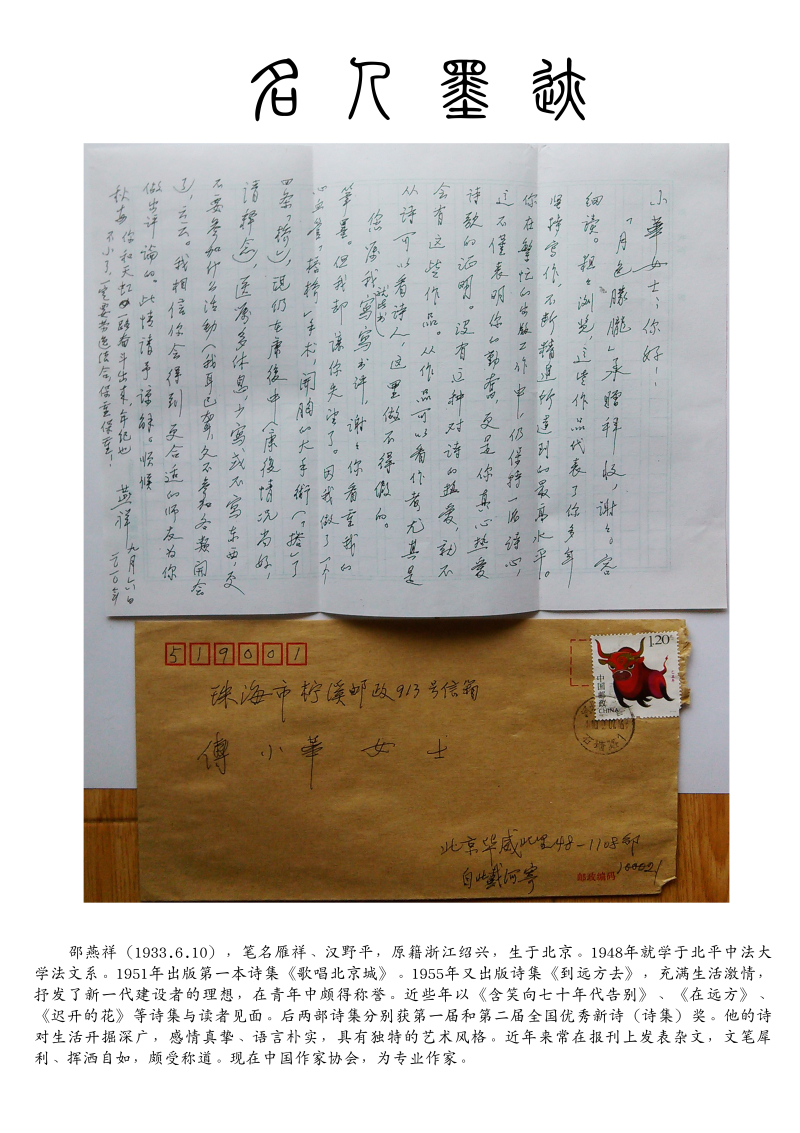 名人墨迹
小華女士：你好！
「月色朦朧」承赠拜收，谢谢。容
细读。粗粗浏览，这些作品代表了你多年
坚持写作，不断精進所達到的最高水平。
你在繁忙的出版工作中，仍保持一份诗心，
这不僅表明你的勤奮，更是你真心热爱
诗歌的证明。没有这种对诗的热爱，就不
会有这些作品。从作品可以看作者，尤其是
从诗可以看诗人，这里做不得假的。
您原我就此书写写书评，谢谢你看重我的
笔墨。但我却讓你失望了。因我做了一个
心血管「搭橋」手术，開胸的大手術（「搭」了
四条「橋」），现仍在康複中（康複情况尚好，
请释念），医嘱多休息，少写或不写东西，更
不要参加什么活動（我耳已聋，久不参加各類開会
了），云云。我相信你会得到更合适的师友为你
做出评論的。此情请予谅解。顺候
秋安
你和天虹一路奋斗出来，年纪也
不小了，一定要劳逸结合，保重保重！
燕祥
九月六日
二〇一〇年
519001
1.20
中国邮政
CHINA
珠海市柠溪邮政913号信箱
傅小華女士
北京华威北里48-1108邵
自北戴河寄
邮政编码
100021
邵燕祥（1933.6.10），笔名雁祥、汉野平，原籍浙江绍兴，生于北京。1948年就学于北平中法大
学法文系。1951年出版第一本诗集《歌唱北京城》。1955年又出版诗集《到远方去》，充满生活激情，
抒发了新一代建设者的理想，在青年中颇得称誉。近些年以《含笑向七十年代告别》、《在远方》、
《迟开的花》等诗集与读者见面。后两部诗集分别获第一届和第二届全国优秀新诗（诗集）奖。他的诗
对生活开掘深广，感情真挚、语言朴实，具有独特的艺术风格。近年来常在报刊上发表杂文，文笔犀
利、挥洒自如，颇受称道。现在中国作家协会，为专业作家。